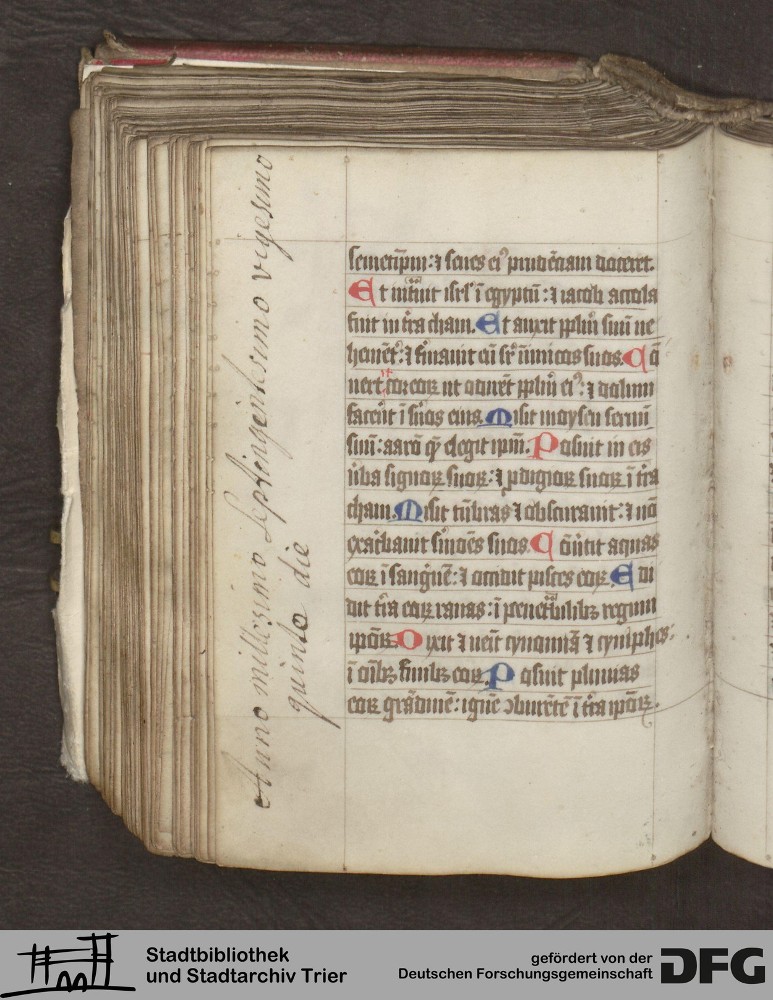 Anno millesimo septingentesimo vigesimo
quinto die
semetip̄m: ⁊ senes ei᷒ prudēciam doceret.
Et int͛uit isrl' ī egyptū: ⁊ iacob accola
fuit in t͛ra cham. Et auxit pplm̄ suū ve
hemēt͛: ⁊ firmauit eū sr̄ inimicos suos. Cō
uertit cor eoꝝ ut odirēt pplm̄ ei᷒: ⁊ dolum
facerēt ī s͛uos eius. Misit moysen seruū
suū: aarō quē elegit ipm̄. Posuit in eis
u͛ba signoꝝ suoꝝ: ⁊ p̱digioꝝ suoꝝ ī t͛ra
cham. Misit tenebras ⁊ obscurauit: ⁊ nō
exac͛bauit s͛mōes suos. Cōu͛tit aquas
eoꝝ ī sanguinē: ⁊ occidit pisces eoꝝ. Edi
dit t͛ra eoꝝ ranas: ī penet͛libꝫ regum
ip̄oꝝ. Dixit ⁊ uēit cynomia ⁊ cyniphes:
ī oībꝫ finibꝫ eoꝝ. Posuit pluuias
eoꝝ grādinē: ignē ꝯburētē ī t͛ra ip̄oꝝ.
Stadtbibliothek
und Stadtarchiv Trier
gefördert von der
Deutschen Forschungsgemeinschaft
DFG